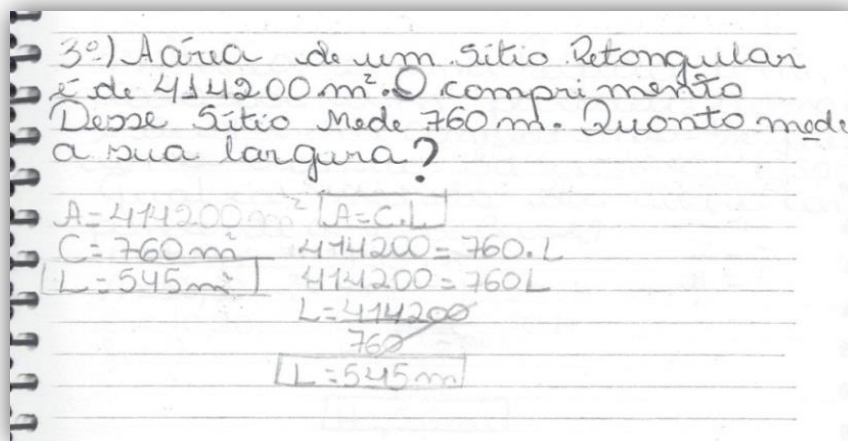 3º) A área de um sítio Retongular
é de 414200 m². O comprimento
Desse Sítio Mede 760 m. Quonto mede
a sua largura?
A = 414200 m² A = C.L
C = 760 m² 414200 = 760.L
L = 545 m² 414200 = 760L
L = 414200
760
L = 545 m